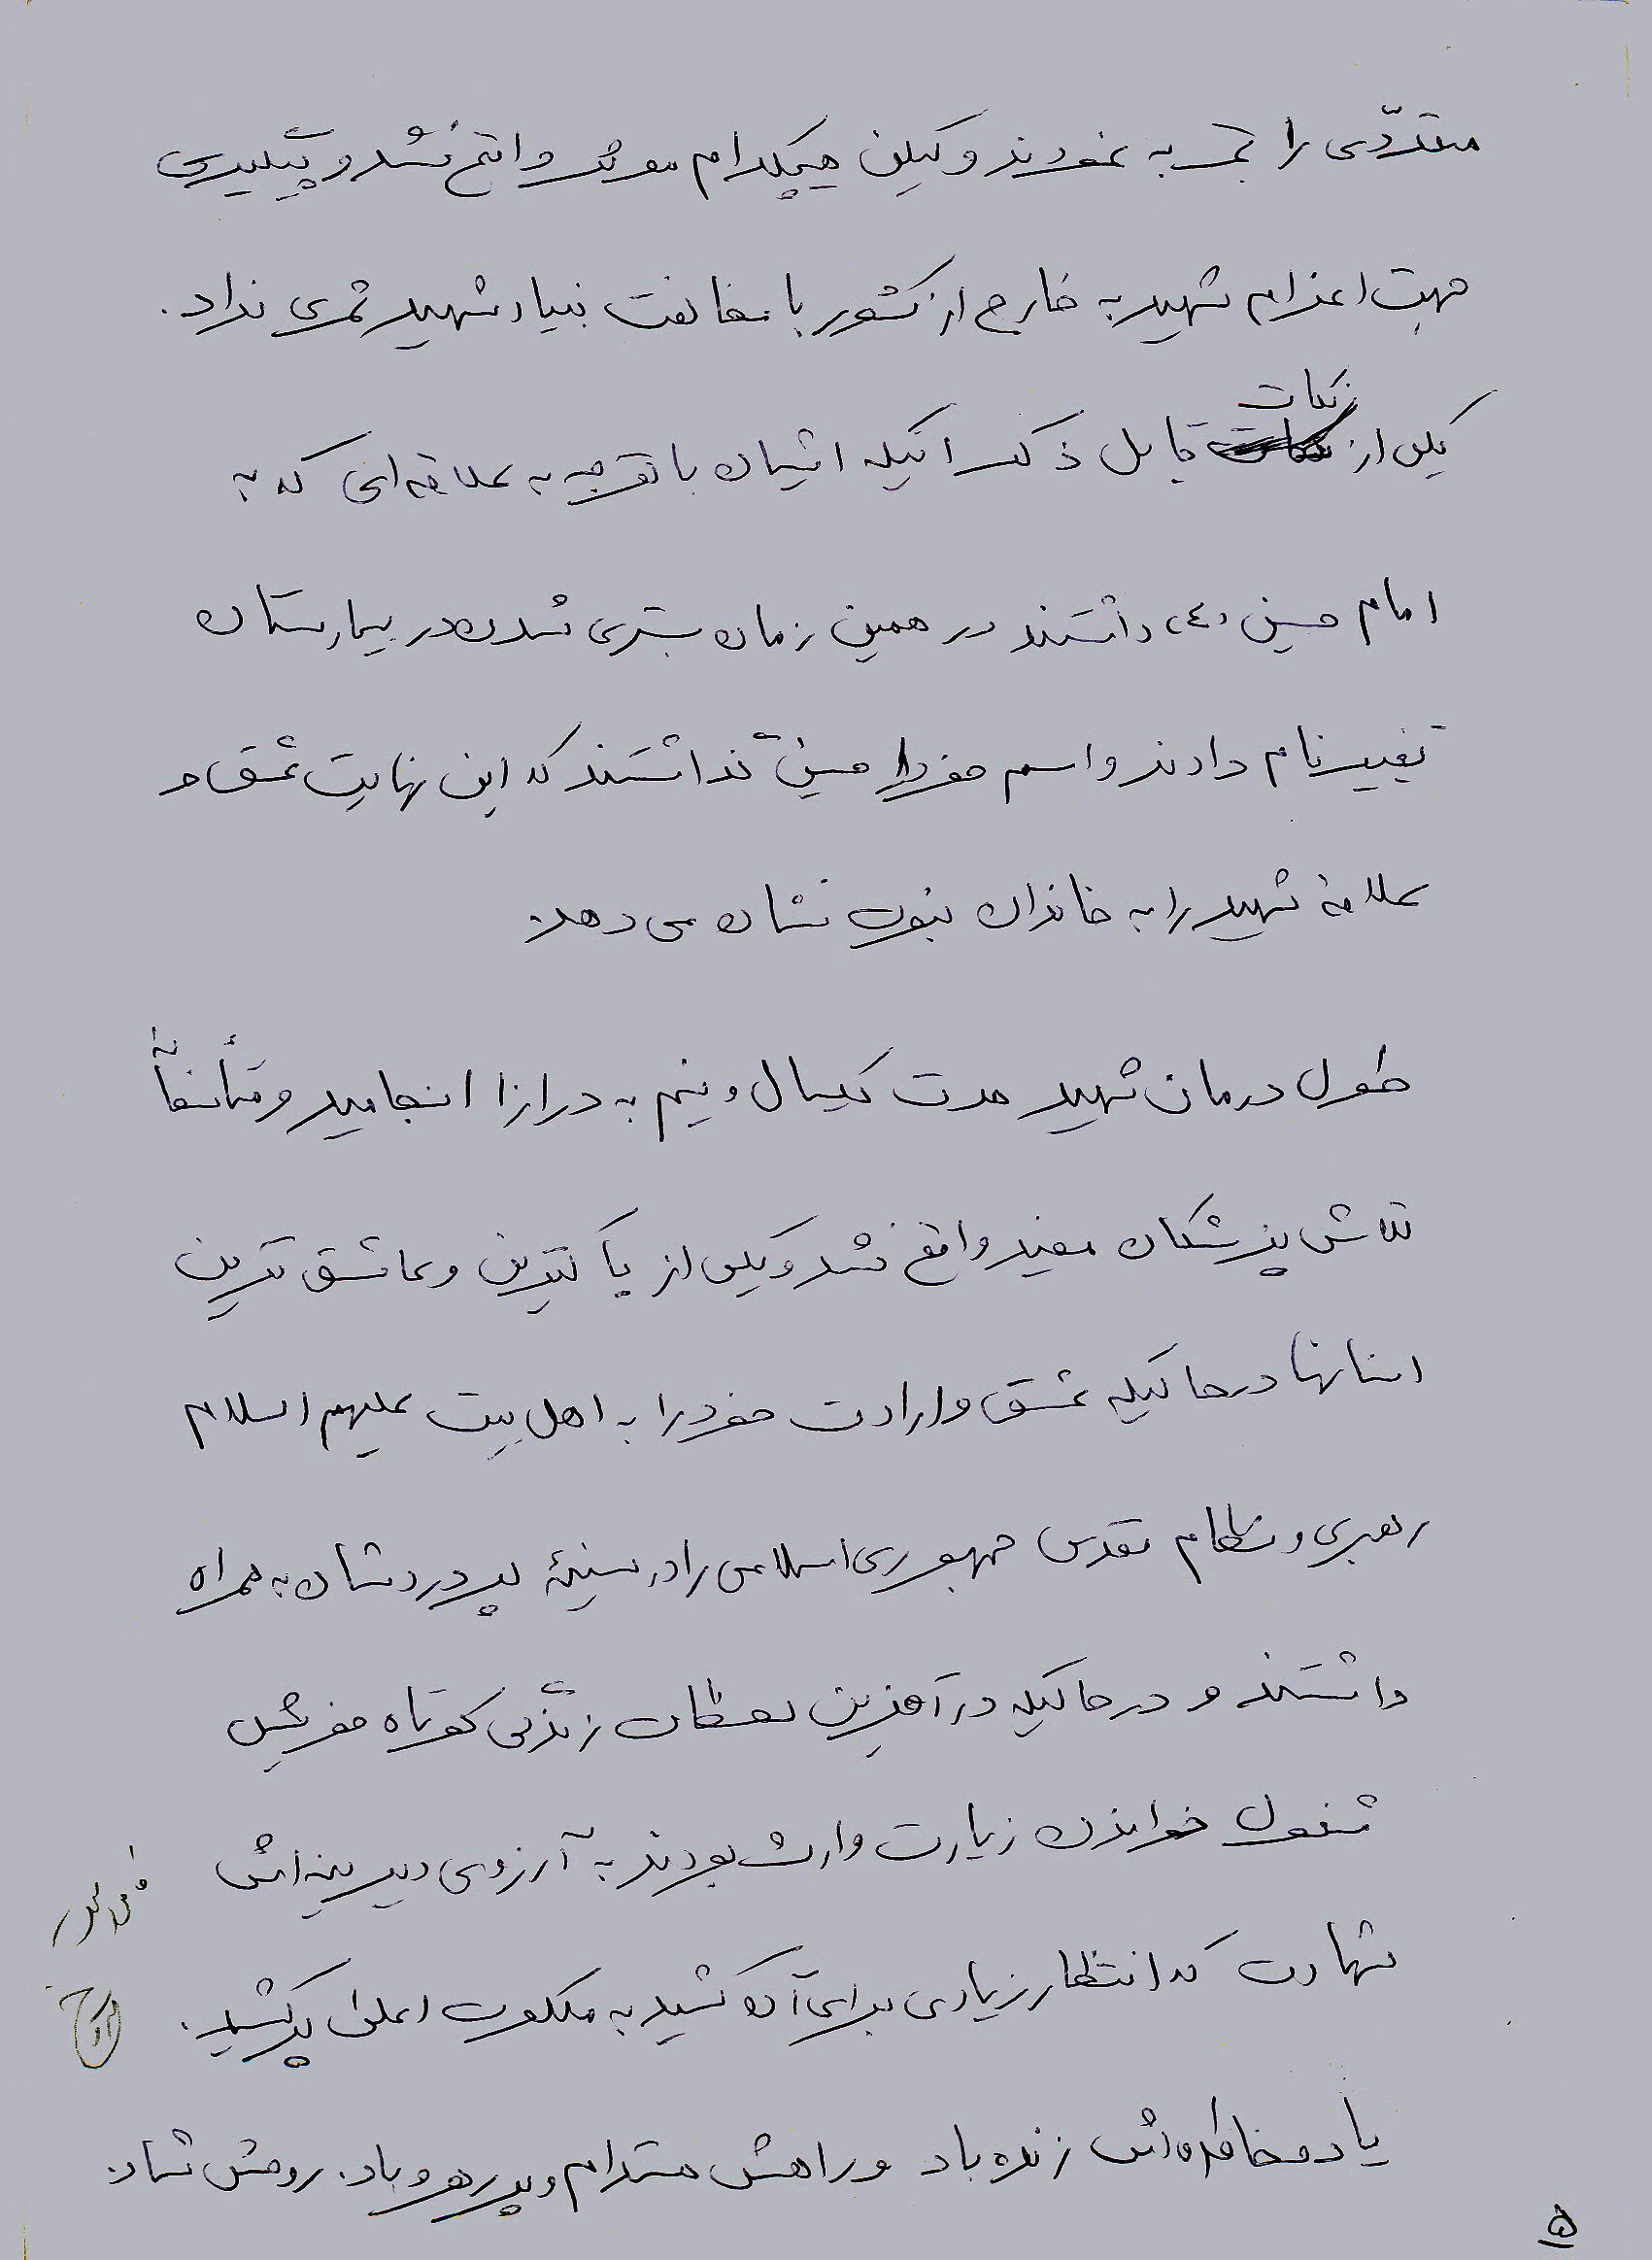 متعددّی را تجربه نمودند ولیکن هیچکدام موثر واقع نشد و پیگیری
جهت اعزام شهید به خارج از کشور با مخالفت بنیاد شهید ثمری نداد.
یکی از نکات قابل ذکر اینکه ایشان با توجه به علاقه‌ای که به
امام حسین «ع» داشتند در همین زمان بستری شدن در بیمارستان
تغییر نام دادند و اسم خود را حسین گذاشتند که این نهایت عشق و
علاقه شهید را به خاندان نبوت نشان می‌دهد.
طول درمان شهید مدت یکسال و نیم به درازا انجامید و متأسفانه
تلاش پزشکان مفید واقع نشد و یکی از پاکترین و عاشق ترین
انسانها درحالیکه عشق و ارادت خود را به اهل بیت علیهم السلام
رهبری و نظام مقدس جمهوری اسلامی را در سینهٔ پر دردشان به همراه
داشتند و درحالیکه در آخرین لحظات زندگی کوتاه خویش
مشغول خواندن زیارت وارث بودند به آرزوی دیرینه‌اش
شهادت که انتظار زیادی برای آن کشید به ملکوت اعلی پرکشید.
یاد و خاطره‌اش زنده باد و راهش مستدام و پر رهرو باد. روحش شاد.
۵